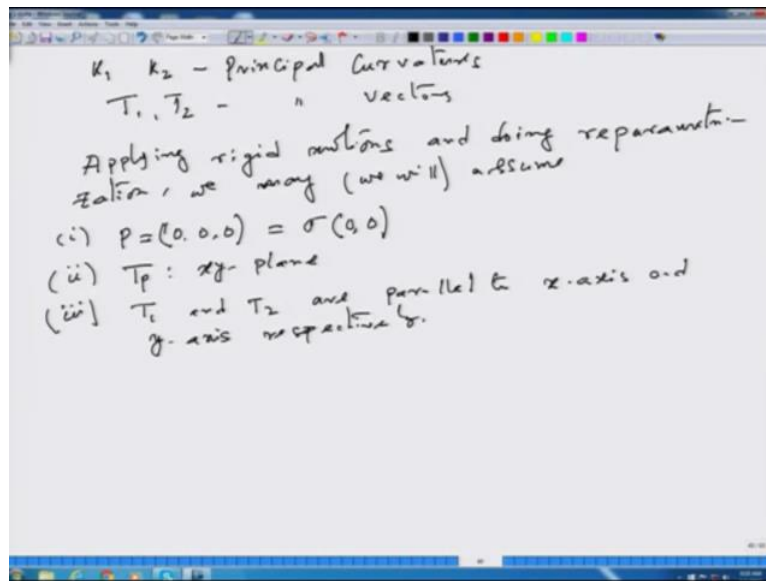 K₁ K₂ - Principal Curvatures
T₁, T₂ - " vectors
Applying rigid motions and doing reparametri-
zation, we may (we will) assume
(i) P = (0,0,0) = σ(0,0)
(ii) Tp : xy-plane
(iii) T₁ and T₂ are parallel to x-axis and
y-axis respectively.